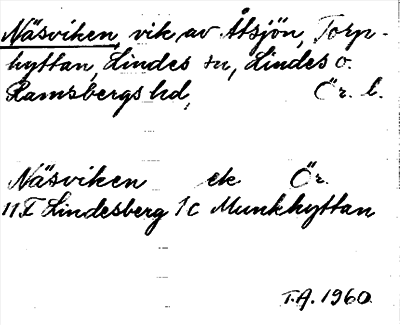 Näsviken, vik av Åtsjön, Torp-
hyttan, Lindes sn, Lindes o.
Ramsbergs hd, Ör. l.
Näsviken ek Ör.
11F Lindesberg 1c Munkhyttan
T.A. 1960